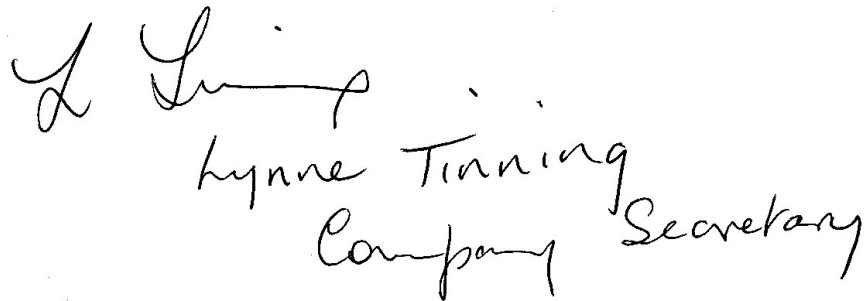 L Tinning
Lynne Tinning
Company Secretary